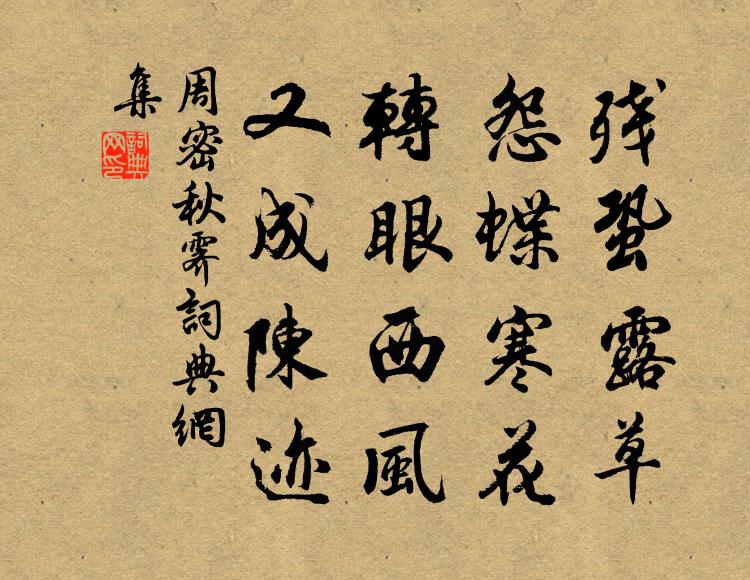 残蛩露草
怨蝶寒花
轉眼西風
又成陳迹
周密秋霽詞典網
集
詞典
网印